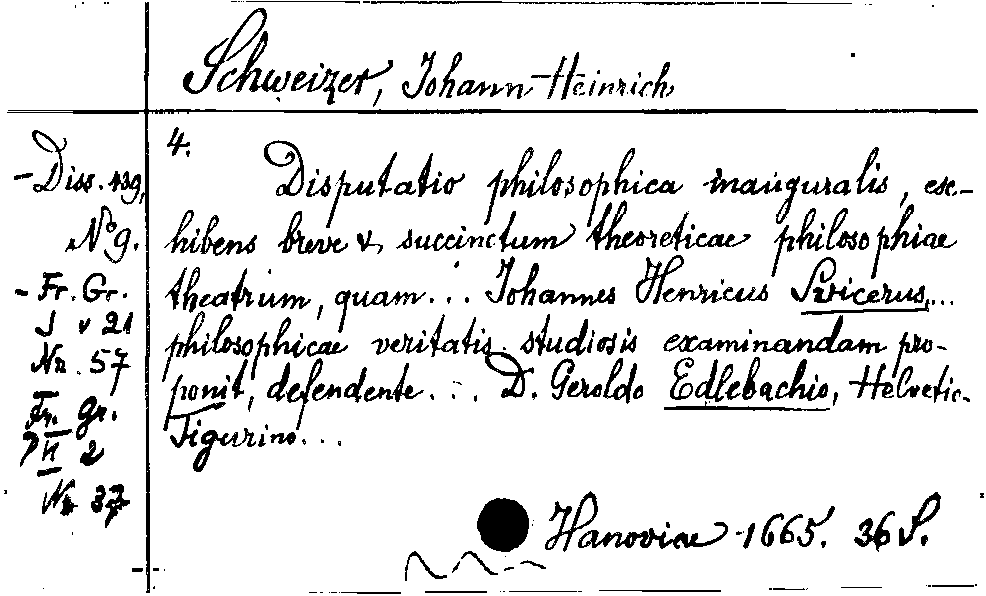 Schweizer, Johann Heinrich
4.
Disputatio philosophica inauguralis, exhibens
hibens breve & succinctum theoreticae philosophiae
theatrum, quam... Johannes Henricus Svicerus,...
philosophicae veritatis studiosis examinandam pro-
ponit, defendente... D. Geroldo Edlebachio, Helvetic-
Tigurino...
Hanoviae 1665. 36 S.
- Diss. 439,
N° 9.
- Fr. Gr.
J v 21
Nr. 57
Fr. Gr.
2
Nr 37